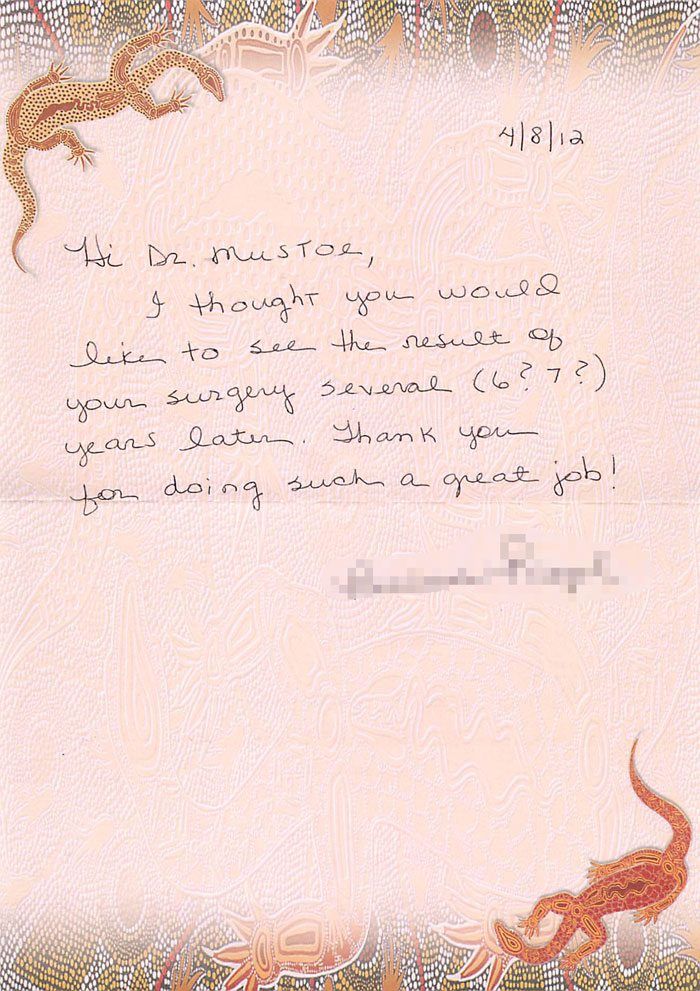 4/8/12
Hi Dr. Mustoe,
I thought you would
like to see the result of
your surgery several (6? 7?)
years later. Thank you
for doing such a great job!